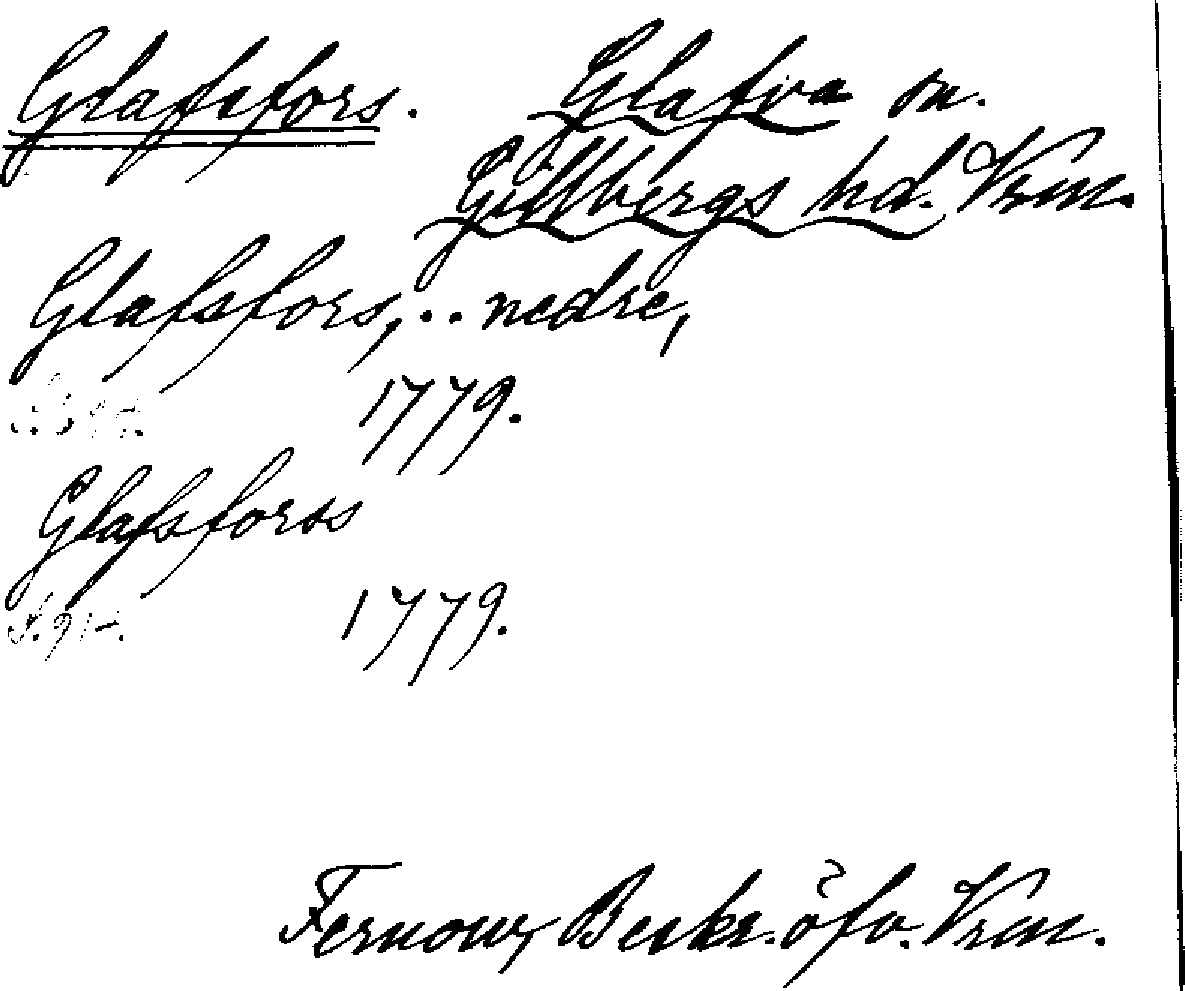 Glafsfors. Glafva sn.
Gillbergs hd. Vrm.
Glafsfors, .. nedre,
1779.
Glafsforss
S. 914. 1779.
Fernow, Beskr. öfv. Vrm.